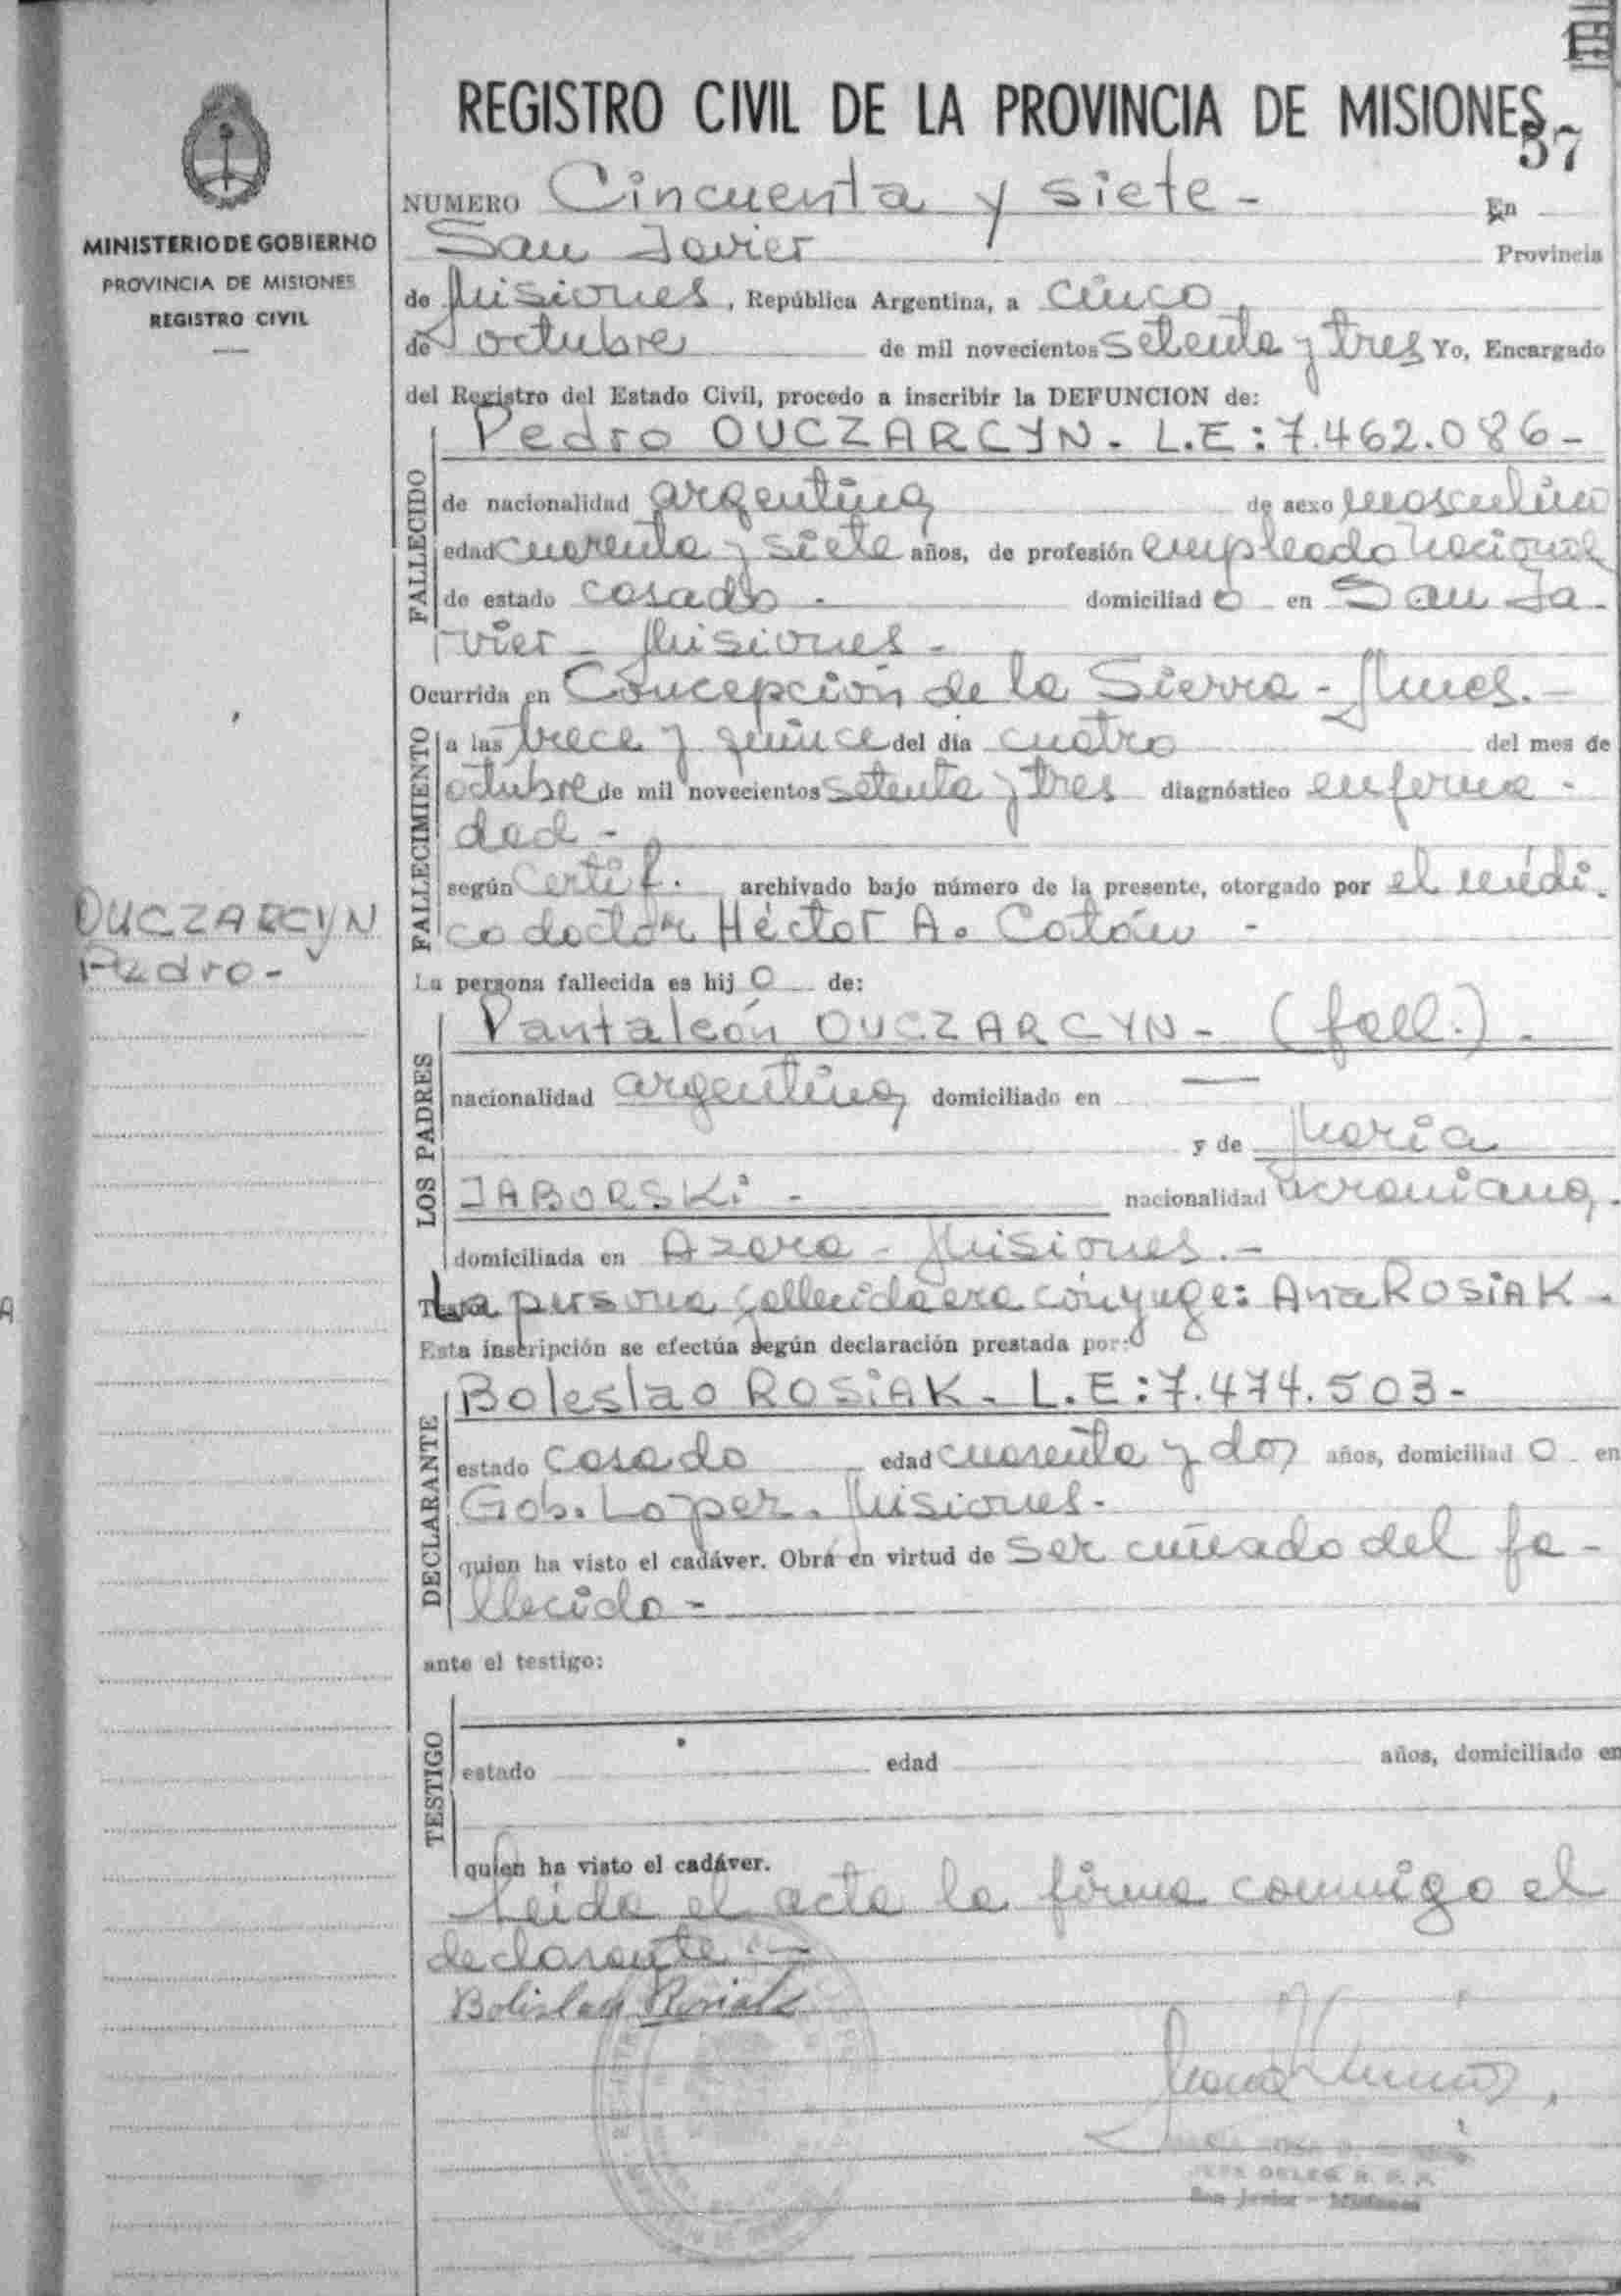 REGISTRO CIVIL DE LA PROVINCIA DE MISIONES
57
MINISTERIO DE GOBIERNO
PROVINCIA DE MISIONES
REGISTRO CIVIL
NUMERO Cincuenta y siete - En
San Javier Provincia
de Misiones, República Argentina, a cinco
de octubre de mil novecientos setenta y tres Yo, Encargado
del Registro del Estado Civil, procedo a inscribir la DEFUNCION de:
FALLECIDO
Pedro OUCZARCYN. L.E: 7.462.086-
de nacionalidad argentina de sexo masculino
edad cuarenta y siete años, de profesión empleado nacional
de estado casado. domiciliado en San Ja-
vier - Misiones -
Ocurrida en Concepción de la Sierra - Mnes. -
FALLECIMIENTO
a las trece y quince del día cuatro del mes de
octubre de mil novecientos setenta y tres diagnóstico enferme-
dad -
según Certif. archivado bajo número de la presente, otorgado por el médi-
co doctor Héctor A. Catán -
OUCZARCYN
Pedro -
La persona fallecida es hijo de:
LOS PADRES
Pantaleón OUCZARCYN - (fall.) -
nacionalidad argentina domiciliado en —
y de María
JABORSKi - nacionalidad ucraniana -
domiciliada en Azara - Misiones. -
La persona fallecida era cónyuge: Ana ROSiAK -
Esta inscripción se efectúa según declaración prestada por:
DECLARANTE
Boleslao ROSiAK - L.E: 7.474.503-
estado casado edad cuarenta y dos años, domiciliado en
Gob. Lopez. Misiones -
quien ha visto el cadáver. Obra en virtud de ser cuñado del fa-
llecido -
ante el testigo:
TESTIGO
estado edad años, domiciliado en
quien ha visto el cadáver.
Leida el acta la firma conmigo el
declarante. -
San Javier - Misiones